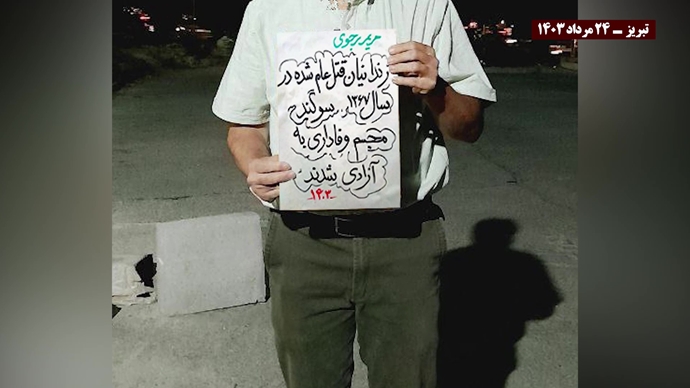 تبریز ــ ۲۴ مرداد ۱۴۰۳
مریم رجوی
زندانیان قتل عام شده در
سال ۱۳۶۷ سوگند
مجسم وفاداری به
آزادی شدند
۱۴۰۳